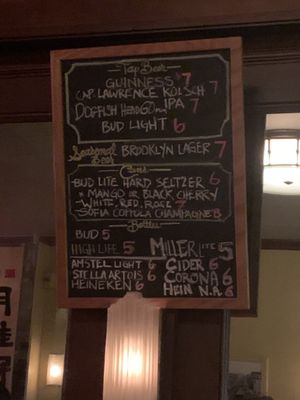 Tap Beer
GUINNESS 7
CAP. LAWRENCE KOLSCH 7
DOGFISH HEAD 60m IPA 7
BUD LIGHT 6
Seasonal Beer BROOKLYN LAGER 7
Cans
BUD LITE HARD SELTZER 6
* MANGO OR BLACK CHERRY
WHITE, RED, ROSE 7
SOFIA COPPOLA CHAMPAGNE 8
Bottles
BUD 5
HIGH LIFE 5
MILLER LITE 5
AMSTEL LIGHT 6
STELLA ARTOIS 6
HEINEKEN 6
CIDER 6
CORONA 6
HEIN N.A. 6